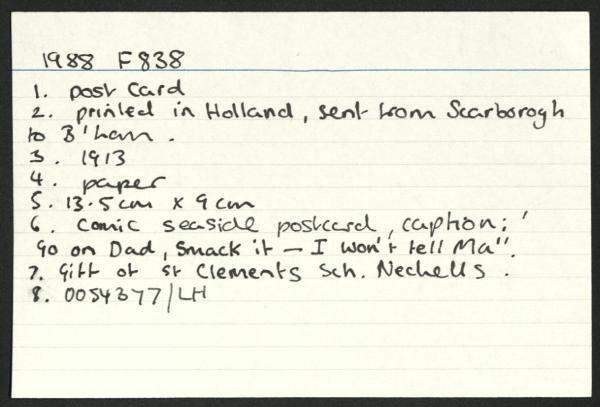 1988 F838
1. post Card
2. printed in Holland, sent from Scarborogh
to B'ham.
3. 1913
4. paper
5. 13.5cm x 9cm
6. Comic seaside postcard, caption; '
Go on Dad, Smack it - I won't tell Ma".
7. Gift of St Clements Sch. Nechells.
8. 0054377/LH